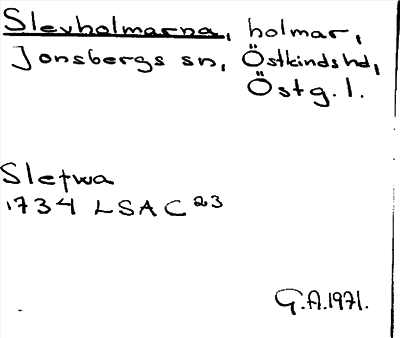 Slevholmarna, holmar,
Jonsbergs sn, Östkinds hd,
Östg. l.
Slefwa
1734 LSAC 23
G.A. 1971.